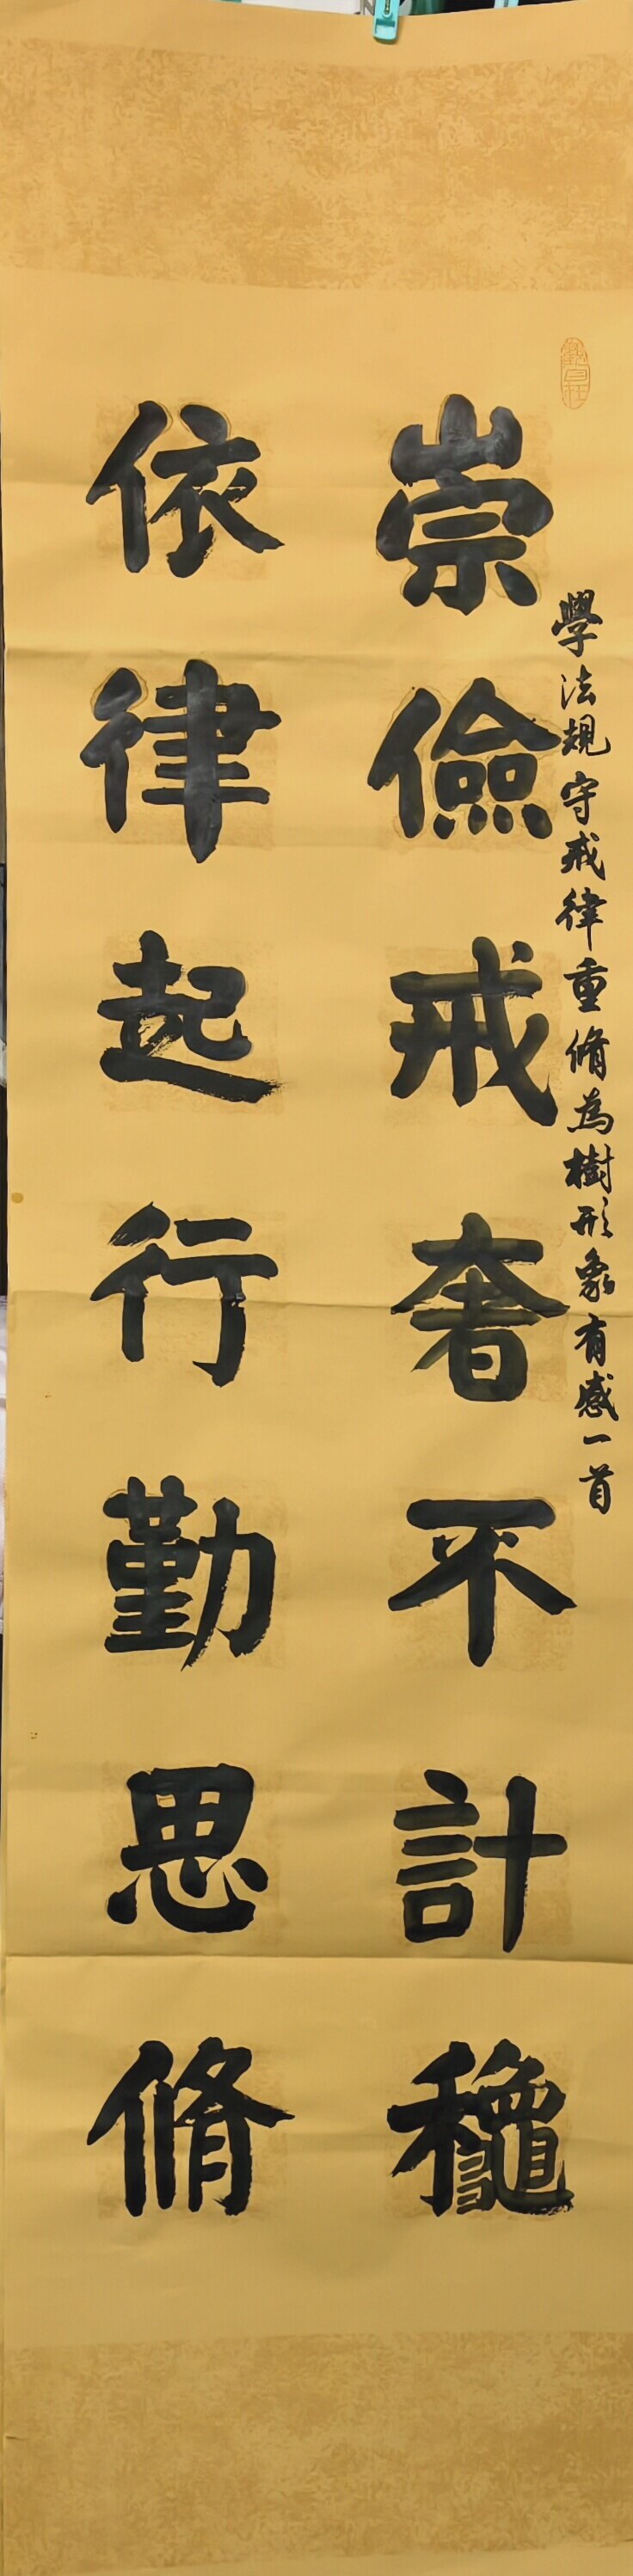 觀自在
學法規守戒律重脩為樹形象有感一首
崇儉戒奢不計龝
依律起行勤思脩